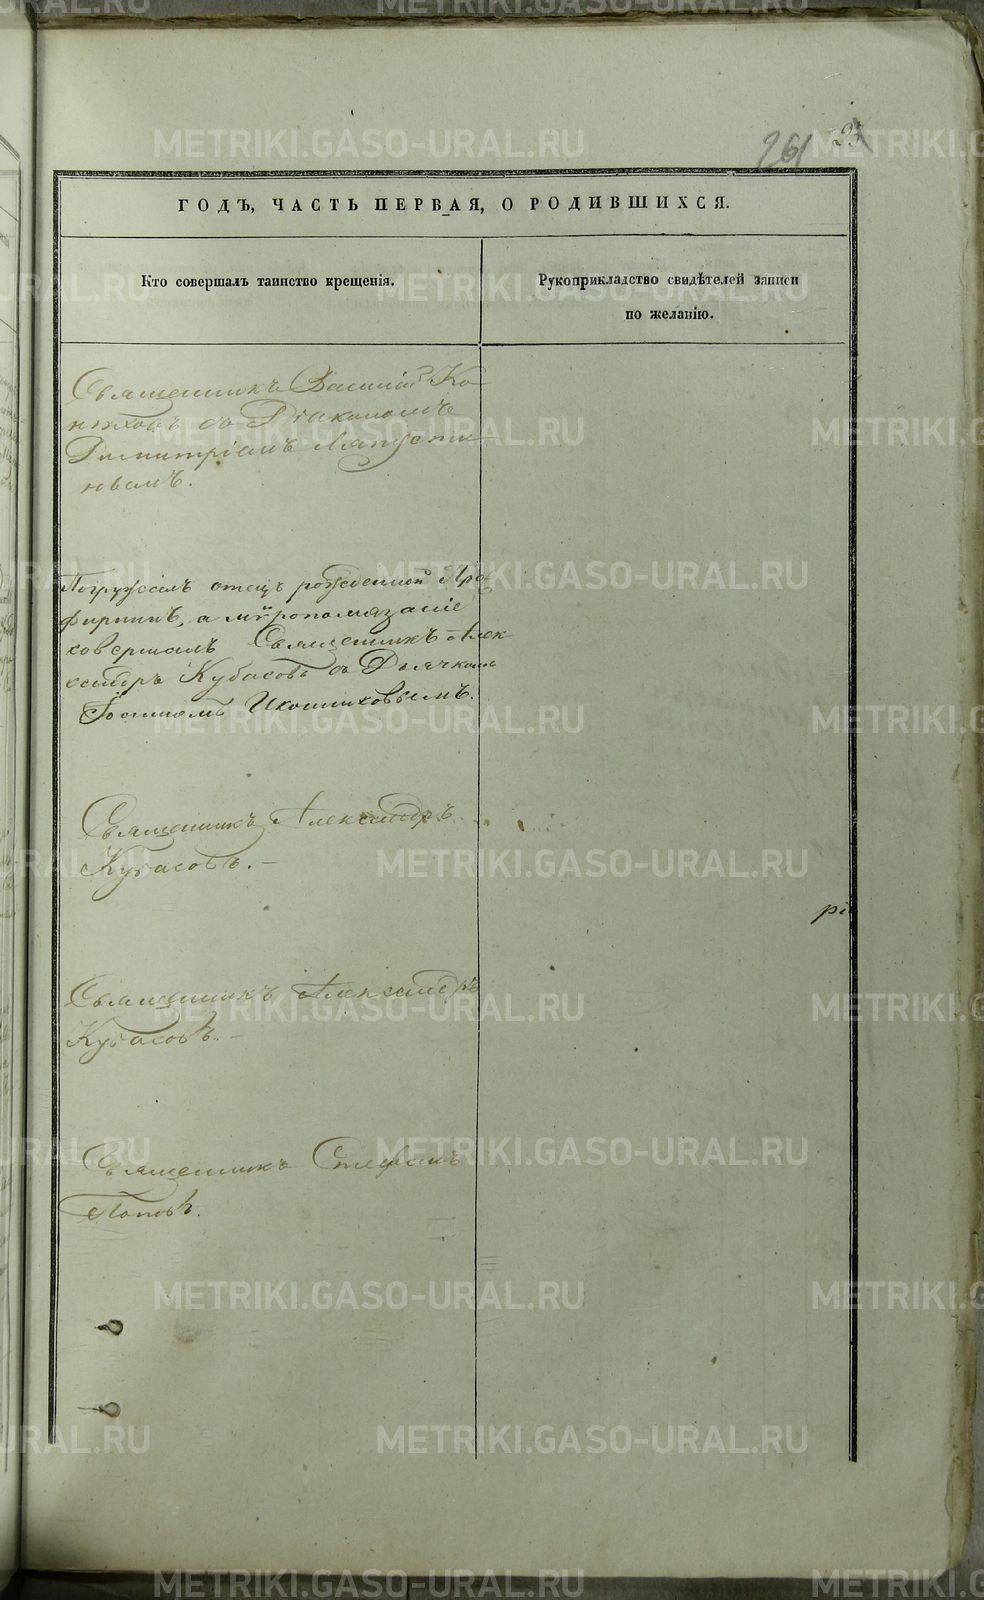 261 23
ГОДЪ, ЧАСТЬ ПЕРВАЯ, О РОДИВШИХСЯ.
Кто совершалъ таинство крещенія.
Рукоприкладство свидѣтелей записи
по желанію.
Священникъ Василій Ко-
нюховъ съ Діакономъ
Димитріемъ
Погружалъ отецъ рожденной Пор-
фирий, а мѵропомазаніе
совершалъ Священникъ Алек-
сандръ Кубасовъ съ Дьячкомъ
Іоанномъ Иконниковымъ.
Священникъ Александръ
Кубасовъ. –
Священникъ Александръ
Кубасовъ. –
Священникъ Стефанъ
Поповъ.
METRIKI.GASO-URAL.RU